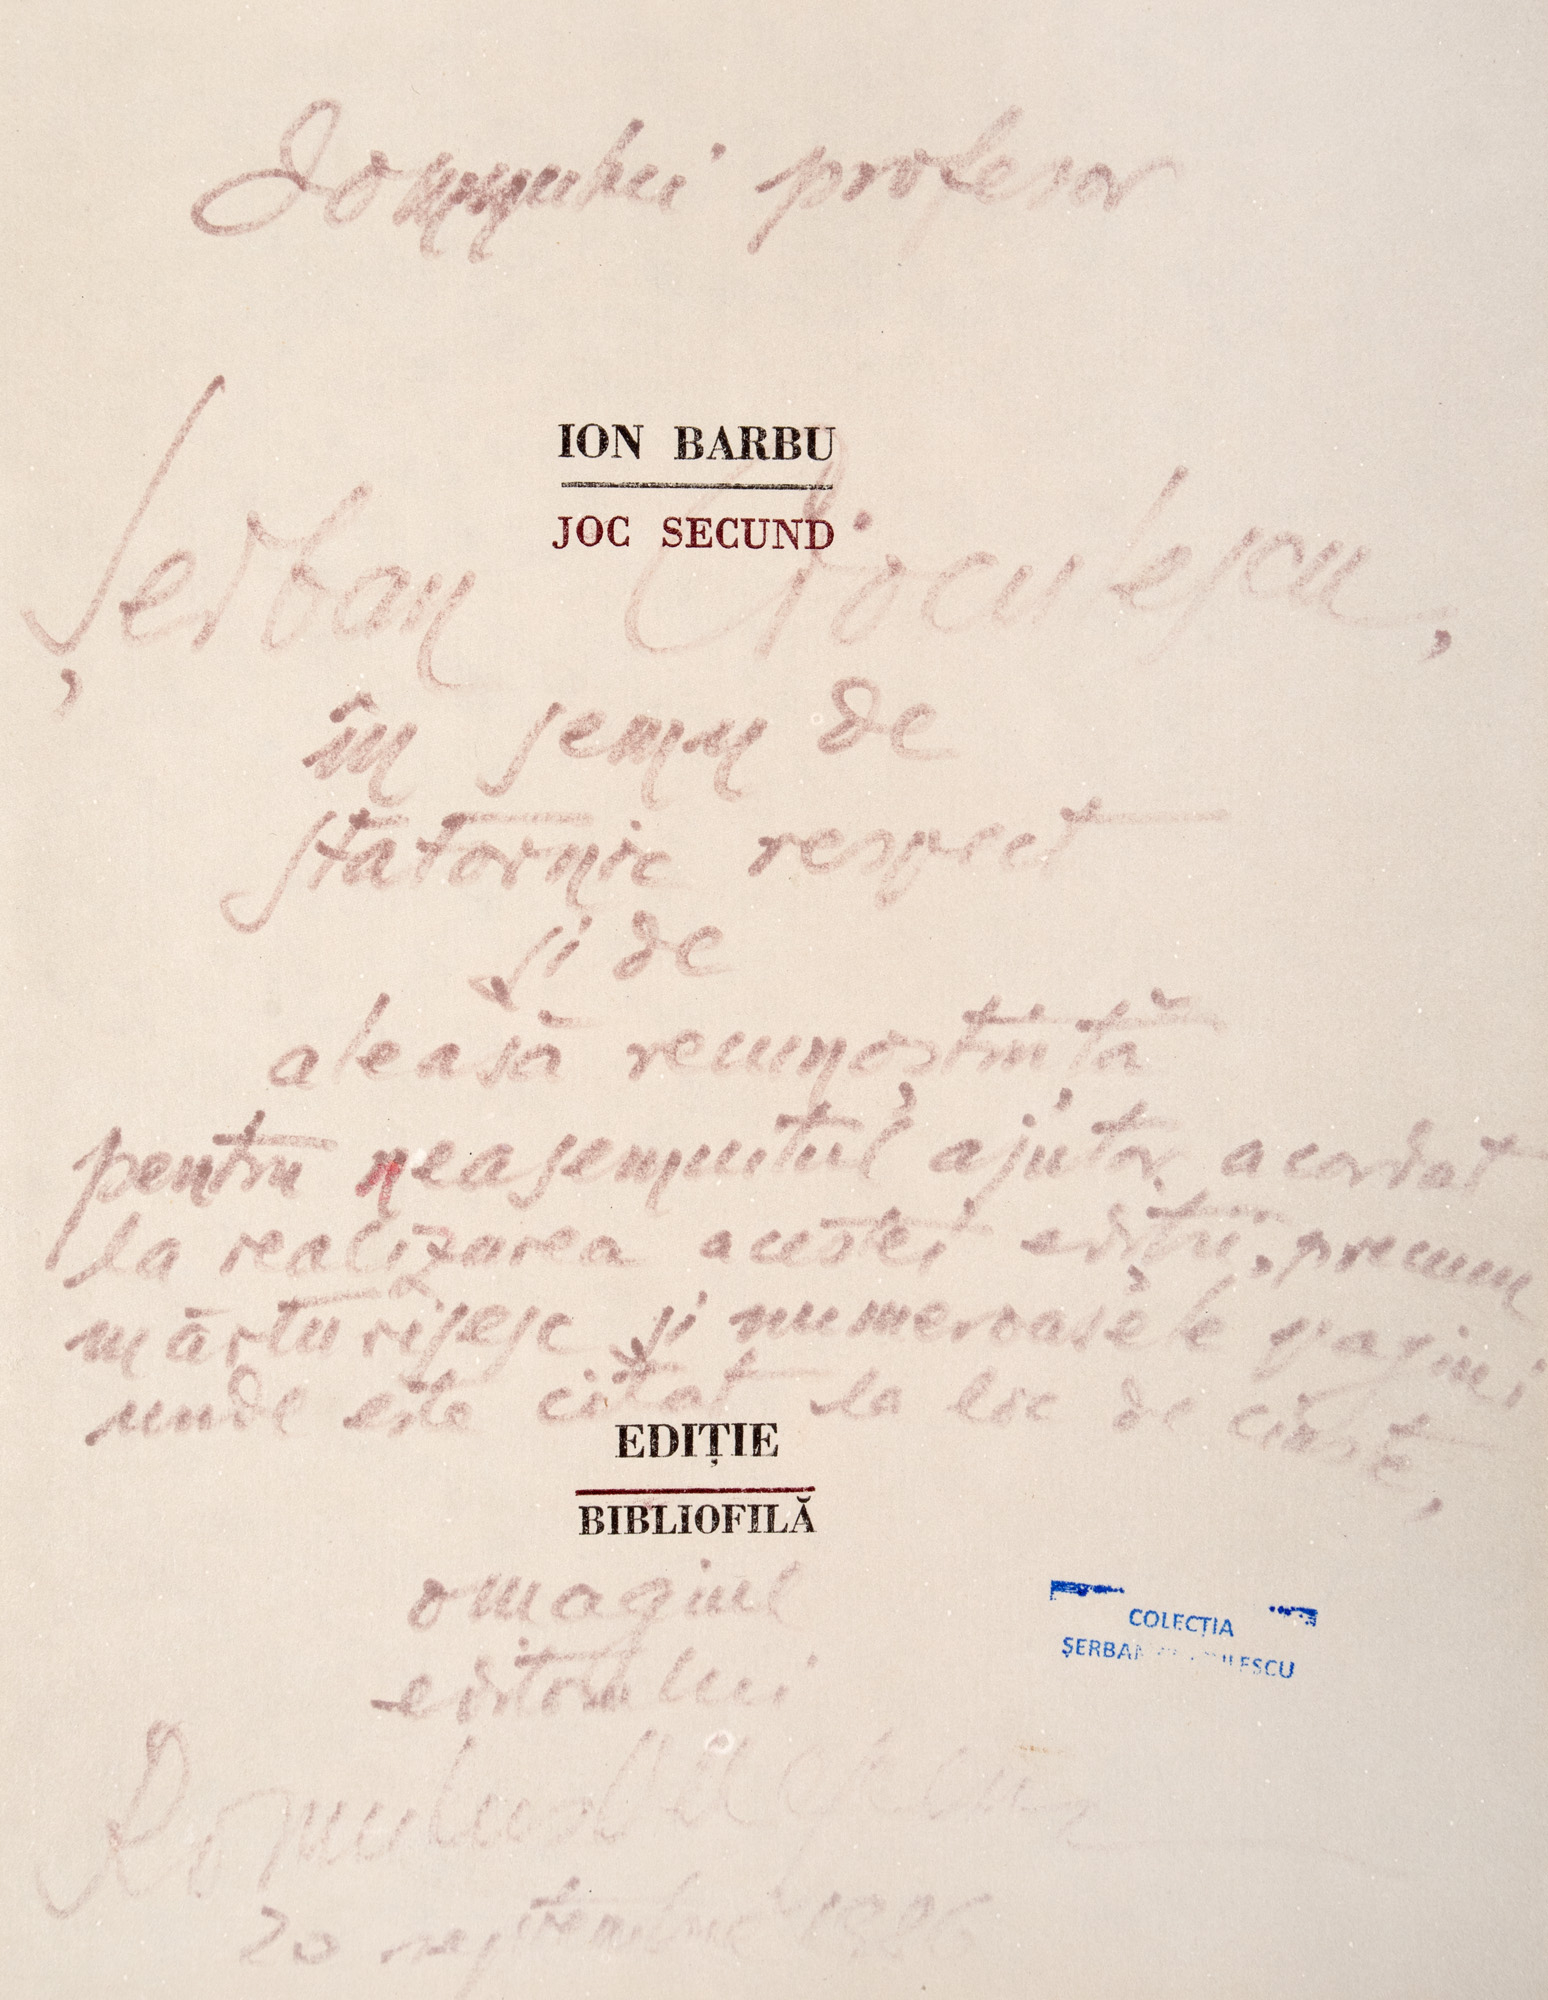 Domnului profesor
ION BARBU
JOC SECUND
Șerban Cioculescu,
în semn de
statornic respect
și de
aleasă recunoștință
pentru neasemuitul ajutor acordat
la realizarea acestei ediții, precum
mărturisesc și numeroasele pagini
unde este citat la loc de cinste,
EDIȚIE
BIBLIOFILĂ
omagiul
editorului
Romulus Vulpescu
20 septembrie 1986
COLECȚIA
ȘERBAN CIOCULESCU